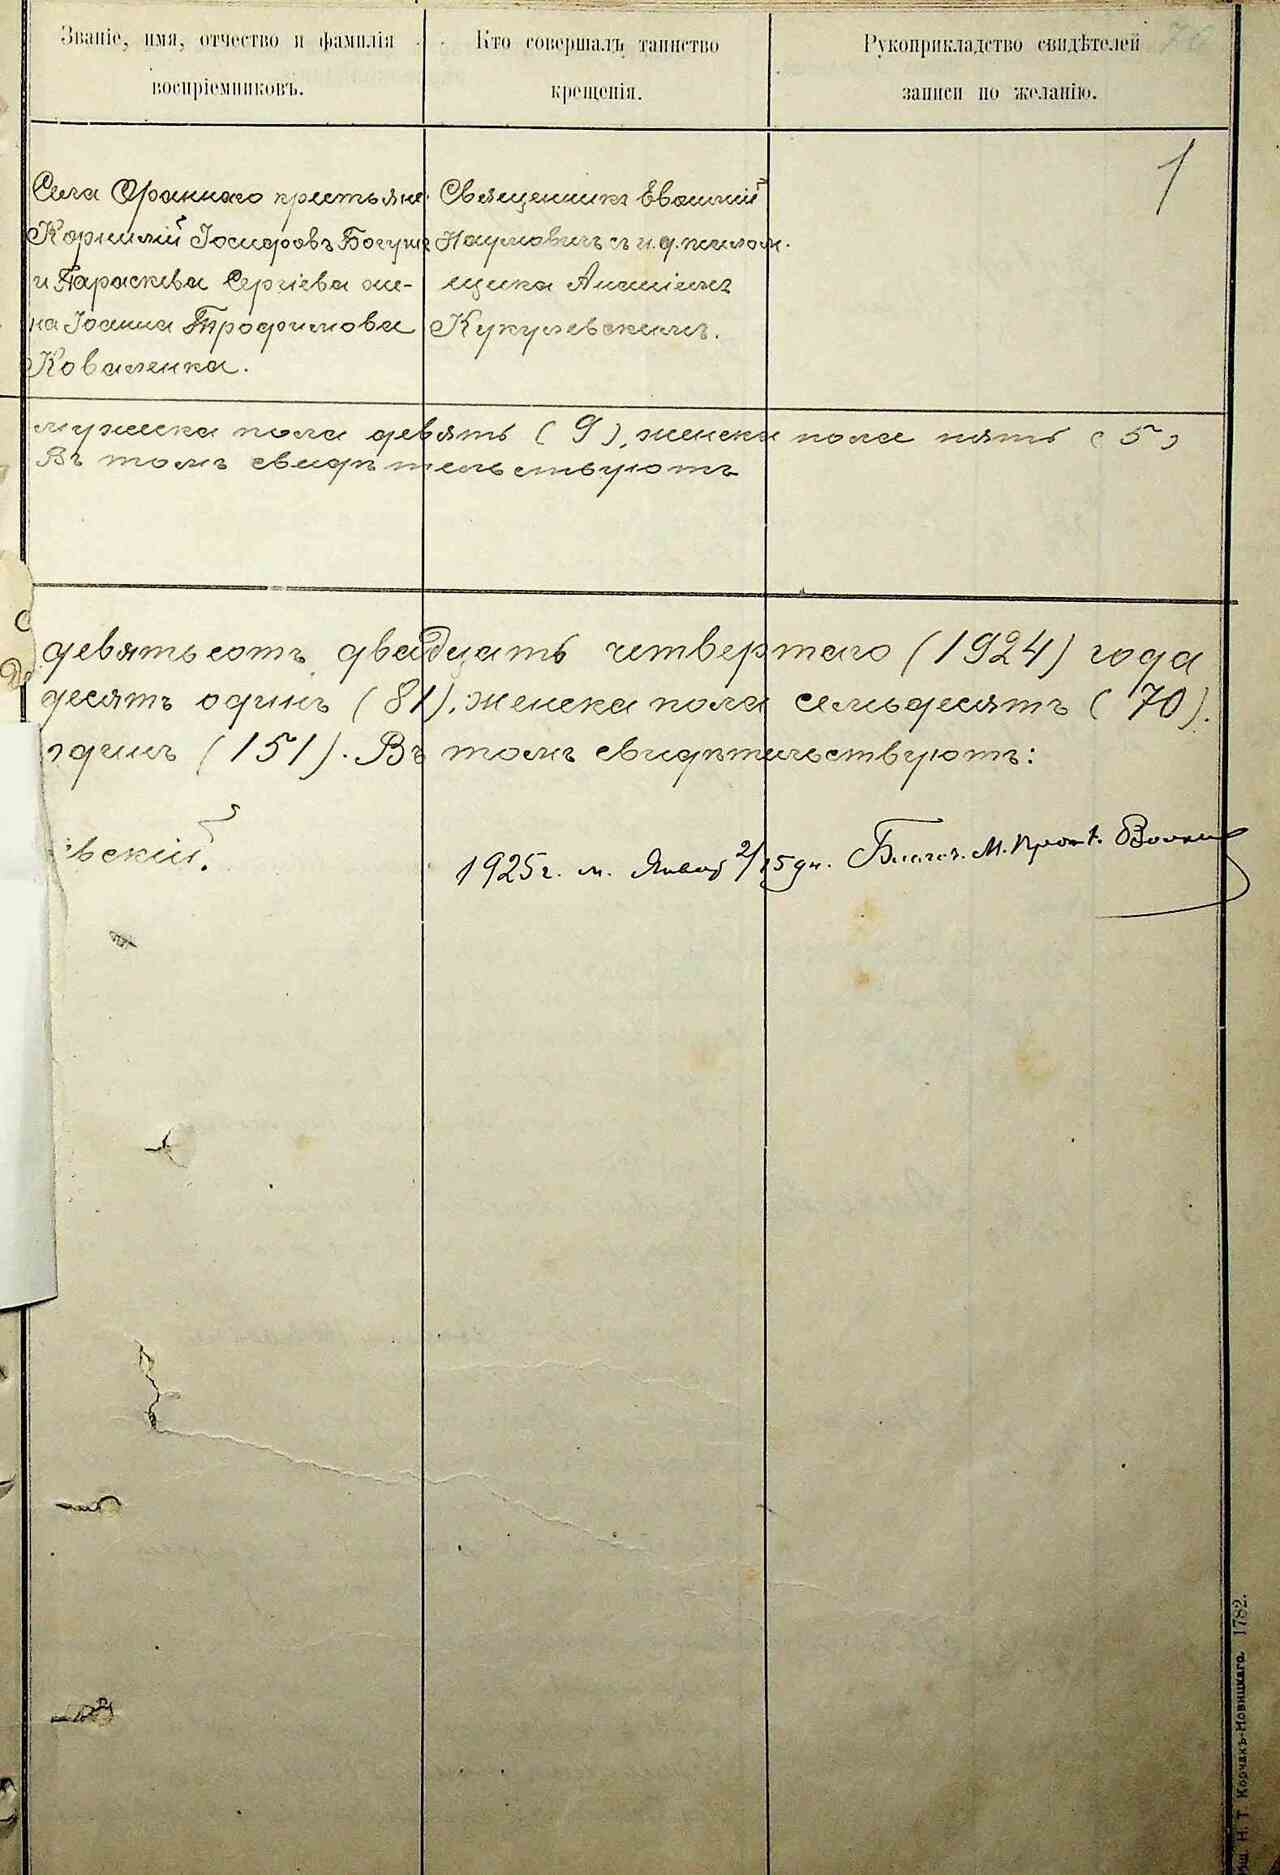 Званіе, имя, отчество и фамилія
воспріемниковъ.
Кто совершалъ таинство
крещенія.
Рукоприкладство свидѣтелей
записи по желанію.
70
1
Села Ораннаго крестьяне
Корнилій Іосифовъ Богуш
и Параскева Сергіева же-
на Іоанна Трофимова
Коваленка.
Священникъ Евѳимій
Наумовичъ съ и. д. псалом-
щика
Кукулевскимъ.
мужеска пола девять (9), женска пола пять (5)
Въ томъ свидѣтельствуютъ
девятьсотъ двадцать четвертаго (1924) года
десятъ одинъ (81), женска пола семьдесятъ (70).
одинъ (151). Въ томъ свидѣтельствуютъ:
вскій.
1925 г. м. Январ 2/15 дн. Благоч. М. Прот.
Н. Т. Корчакъ-Новицкаго. 1782.